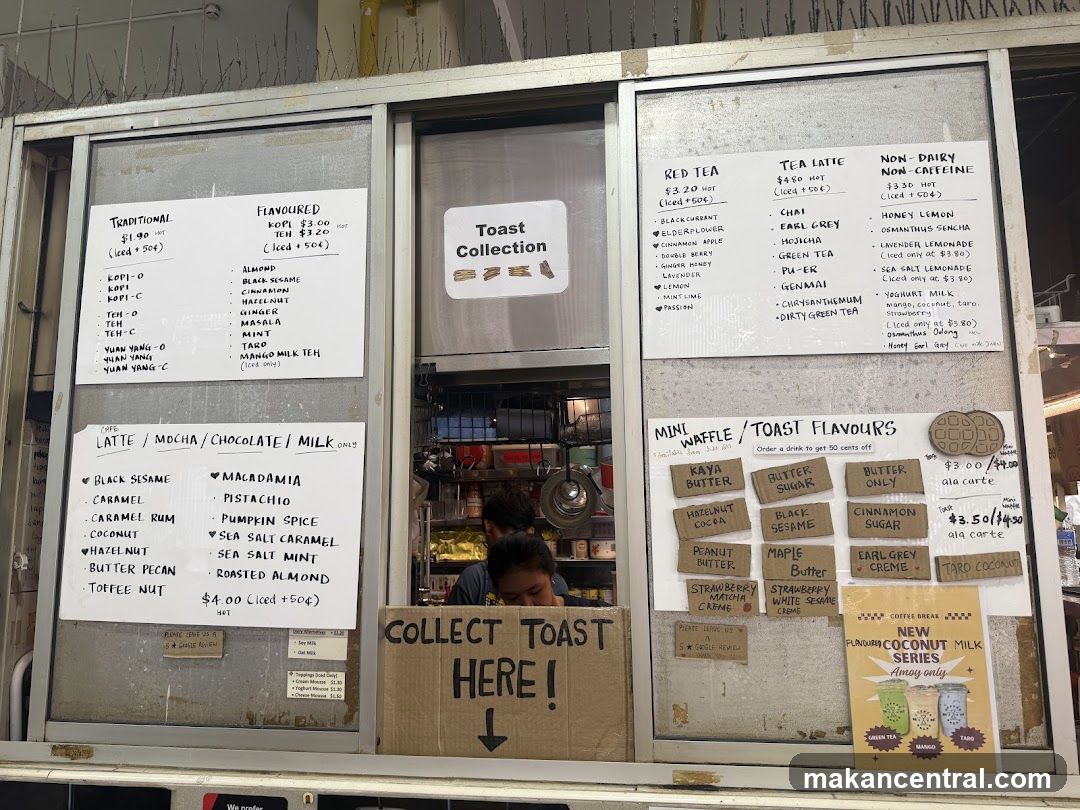 TRADITIONAL
$1.90 HOT
(Iced + 50¢)
• KOPI-O
• KOPI
• KOPI-C
• TEH-O
• TEH
• TEH-C
• YUAN YANG-O
• YUAN YANG
• YUAN YANG-C
FLAVOURED
KOPI $3.00 HOT
TEH $3.20
(Iced + 50¢)
• ALMOND
• BLACK SESAME
• CINNAMON
• HAZELNUT
• GINGER
• MASALA
• MINT
• TARO
• MANGO MILK TEH
(Iced only)
CAFE
LATTE / MOCHA / CHOCOLATE / MILK ONLY
♥ BLACK SESAME
• CARAMEL
• CARAMEL RUM
• COCONUT
♥ HAZELNUT
• BUTTER PECAN
• TOFFEE NUT
♥ MACADAMIA
• PISTACHIO
• PUMPKIN SPICE
♥ SEA SALT CARAMEL
• SEA SALT MINT
• ROASTED ALMOND
$4.00 (Iced +50¢)
HOT
PLEASE LEAVE US A
5 ★ GOOGLE REVIEW
Dairy Alternatives $1.20
• Soy Milk
• Oat Milk
Toppings (Iced Only)
• Cream Mousse $1.30
• Yoghurt Mousse $1.30
• Cheese Mousse $1.50
Toast
Collection
COLLECT TOAST
HERE!
RED TEA
$3.20 HOT
(Iced +50¢)
• BLACKCURRANT
♥ ELDERFLOWER
♥ CINNAMON APPLE
• DOUBLE BERRY
• GINGER HONEY
• LAVENDER
♥ LEMON
• MINT LIME
♥ PASSION
TEA LATTE
$4.80 HOT
(Iced +50¢)
• CHAI
• EARL GREY
• HOJICHA
• GREEN TEA
• PU-ER
• GENMAI
• CHRYSANTHEMUM
• DIRTY GREEN TEA
NON-DAIRY
NON-CAFFEINE
$3.30 HOT
(Iced +50¢)
• HONEY LEMON
• OSMANTHUS SENCHA
• LAVENDER LEMONADE
(Iced only at $3.80)
• SEA SALT LEMONADE
(Iced only at $3.80)
• YOGHURT MILK
mango, coconut, taro,
strawberry
(Iced only at $3.80)
• Osmanthus Oolong
• Honey Earl Grey
MINI
WAFFLE / TOAST FLAVOURS
Order a drink to get 50 cents off
KAYA
BUTTER
BUTTER
SUGAR
BUTTER
ONLY
HAZELNUT
COCOA
BLACK
SESAME
CINNAMON
SUGAR
PEANUT
BUTTER
MAPLE
Butter
EARL GREY
CREME
TARO COCONUT
STRAWBERRY
MATCHA
CREME
STRAWBERRY
WHITE SESAME
CREME
Toast
Mini
Waffle
$3.00 / $4.00
ala carte
Toast
Mini
Waffle
$3.50 / $4.50
ala carte
PLEASE LEAVE US
A
5 ★ GOOGLE REVIEW
COFFEE BREAK
NEW
FLAVOURED COCONUT MILK
SERIES
Amoy only
GREEN TEA
MANGO
TARO
We prefer
makancentral.com